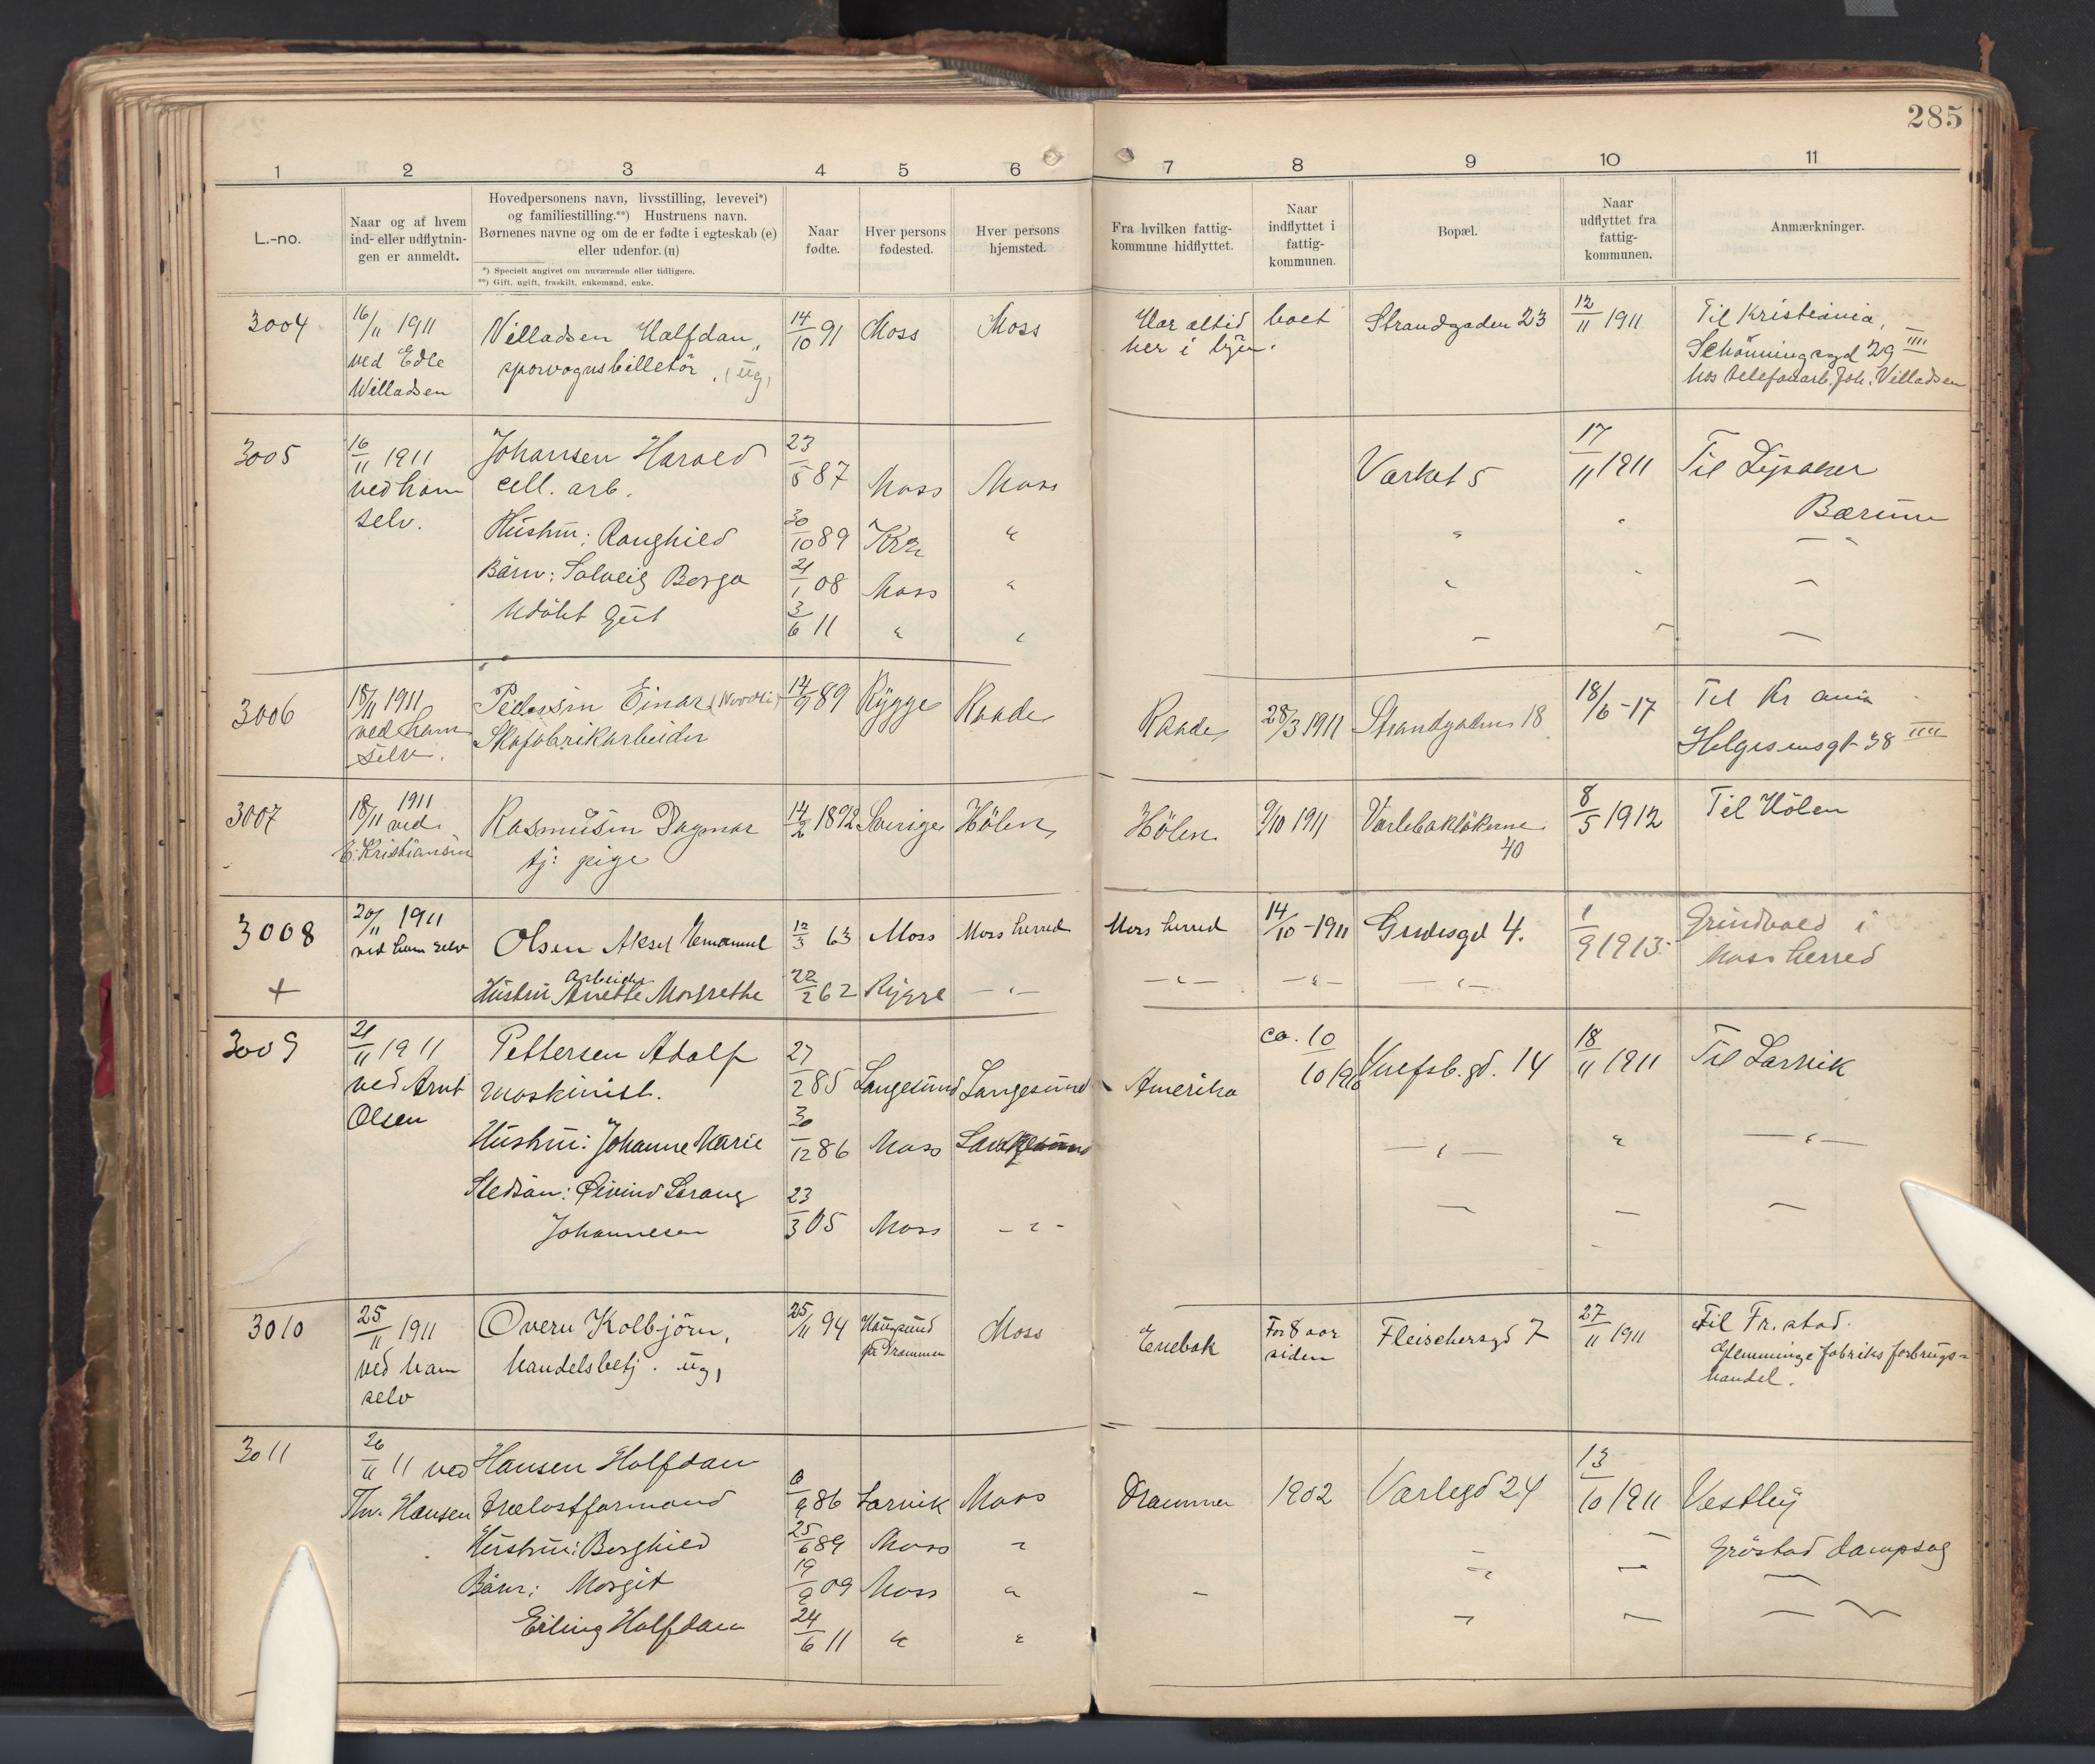 285
1 2 3 4 5 6 7 8 9 10 11
L.-no.
Naar og af hvem
ind- eller udflytnin-
gen er anmeldt.
Hovedpersonens navn, livsstilling, levevei*)
og familiestilling.**) Hustruens navn.
Børnenes navne og om de er fødte i egteskab (e)
eller udenfor. (u)
*) Specielt angivet om nuværende eller tidligere.
**) Gift, ugift, fraskilt, enkemand, enke.
Naar
fødte.
Hver persons
fødested.
Hver persons
hjemsted.
Fra hvilken fattig-
kommune hidflyttet.
Naar
indflyttet i
fattig-
kommunen.
Bopæl.
Naar
udflyttet fra
fattig-
kommunen.
Anmærkninger.
3004
16/11 1911
ved Edle
Willadsen
Villadsen Halfdan,
sporvognsbilletör, (ug)
14/10 91 Moss Moss
Har altid boet
her i byen.
Strandgaden 23
12/11 1911
Til Kristiania,
Schönningsgd 29 IIII
hos telefonarb. Joh. Villadsen
3005
16/11 1911
ved ham
selv.
Johansen Harald
cell. arb.
23/5 87 Moss Moss
Værket 5
17/11 1911
Til Lysaker
Bærum
Hustru: Ranghild 30/10 89 Kra "
Börn: Solveig Borga 21/1 08 Moss "
Udöbt gut 3/6 11 " "
3006
18/11 1911
ved ham
selv.
Pedersen Einar
Skofabrikarbeider
14/9 89 Rygge Raade
Raade 28/3 1911 Strandgaden 18
18/6-17
Til Kr ania
Helgesensgt 38 IIII
3007
18/11 1911
ved
E. Kristiansen
Rasmusen Dagmar
tj: pige
14/2 1892 Sverige Hölen
Hölen 9/10 1911 Varlebakløkerne
40
8/5 1912
Til Hölen
3008
+
20/11 1911
ved ham selv
Olsen Aksel Emanuel
arbeider
12/3 63 Moss Moss herred
Moss herred 14/10-1911 Gudesgd 4.
1/9 1913
Grindvold i
Moss herred
Hustru Anette Margrethe 22/2 62 Rygge — " —
— " — — " — — " —
3009
21/11 1911
ved Arnt
Olsen
Pettersen Adolf
maskinist.
27/2 85 Langesund Langesund
Amerika
ca. 10/10 1910
14
18/11 1911
Til Larvik
Hustru: Johanne Marie 30/12 86 Moss
— " — " — " —
Stedsön: Øivind Sarang
Johannesen
23/3 05 Moss - " -
3010
25/11 1911
ved ham
selv
Overn Kolbjörn,
handelsbetj. ug,
25/11 94
Haugsund
pr Drammen
Moss
Enebak
For 8 aar
siden
Fleischersgd 7
27/11 1911
Til Fr.stad.
Glemminge fabriks forbrugs-
handel.
3011
26/11 11 ved
Thv. Hansen
Hansen Halfdan
trælastformand
6/9 86 Larvik Moss
Drammen 1902 Varlegd 24
13/10 1911
Vestby
Gröstad dampsag
Hustru: Borghild 25/6 89 Moss "
Börn: Margit 19/9 09 Moss "
Erling Halfdan 24/6 11 " "